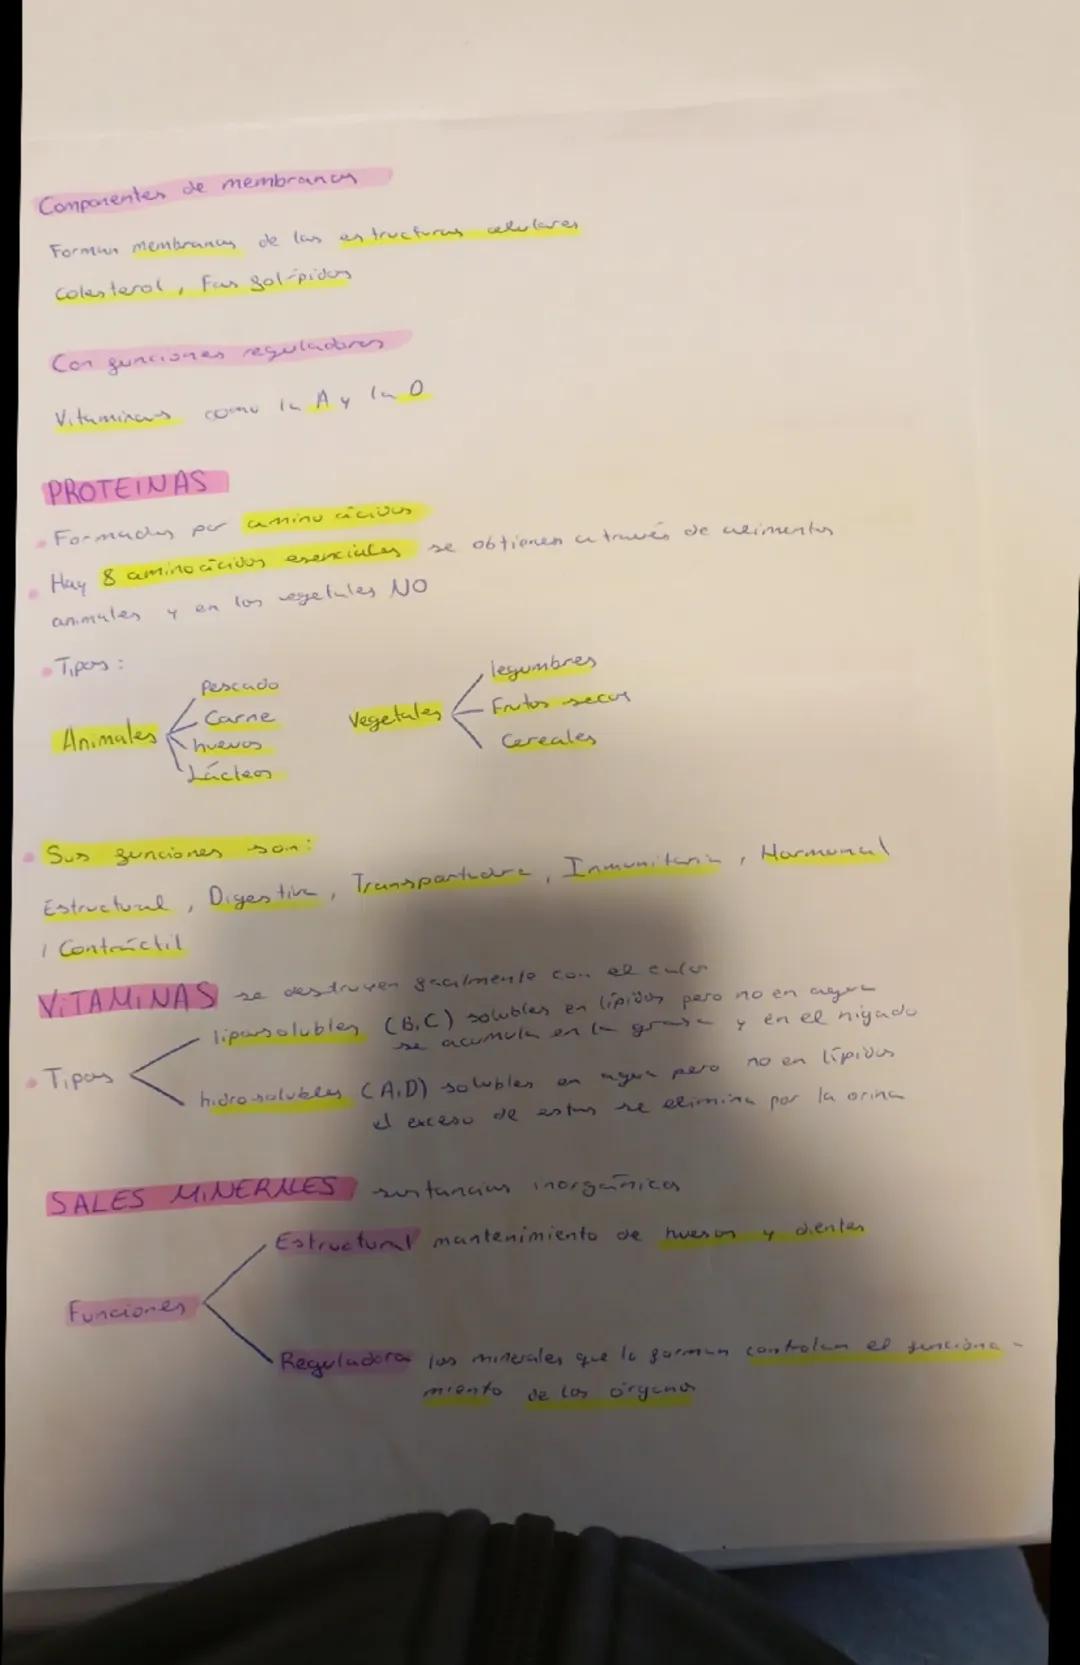 Componentes de membranas
Forman membranas de las estructuras celulares
Colesterol, Fosfolípidos
Con funciones reguladoras
Vitaminas como la A y la D
PROTEINAS
Formadas por amino ácidos
Hay 8 aminoácidos esenciales se obtienen a través de alimentos
animales y en los vegetales NO
Tipos:
Animales
Pescado
Carne
huevos
Lácteos
Vegetales
legumbres
Frutos secos
Cereales
Sus funciones son:
Estructural, Digestiva, Transportadora, Inmunitaria, Hormonal
, Contráctil
VITAMINAS se destruyen facilmente con el calor
Tipos
liposolubles (B,C) solubles en lípidos pero no en agua
se acumula en la grasa y en el hígado
hidrosolubles (A,D) solubles en agua pero no en lípidos
el exceso de estas se elimina por la orina
SALES MINERALES sustancias inorgánicas
Funciones
Estructural mantenimiento de huesos y dientes
Reguladora los minerales que lo forman controlan el funciona-
miento de los órganos